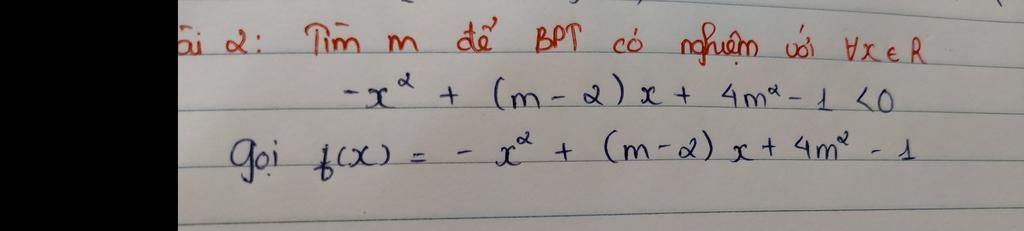 ài 2: Tìm m để BPT có nghiệm với ∀x∈R
-x² + (m-2)x + 4m² - 1 <0
Gọi f(x) = - x² + (m-2) x + 4m² - 1